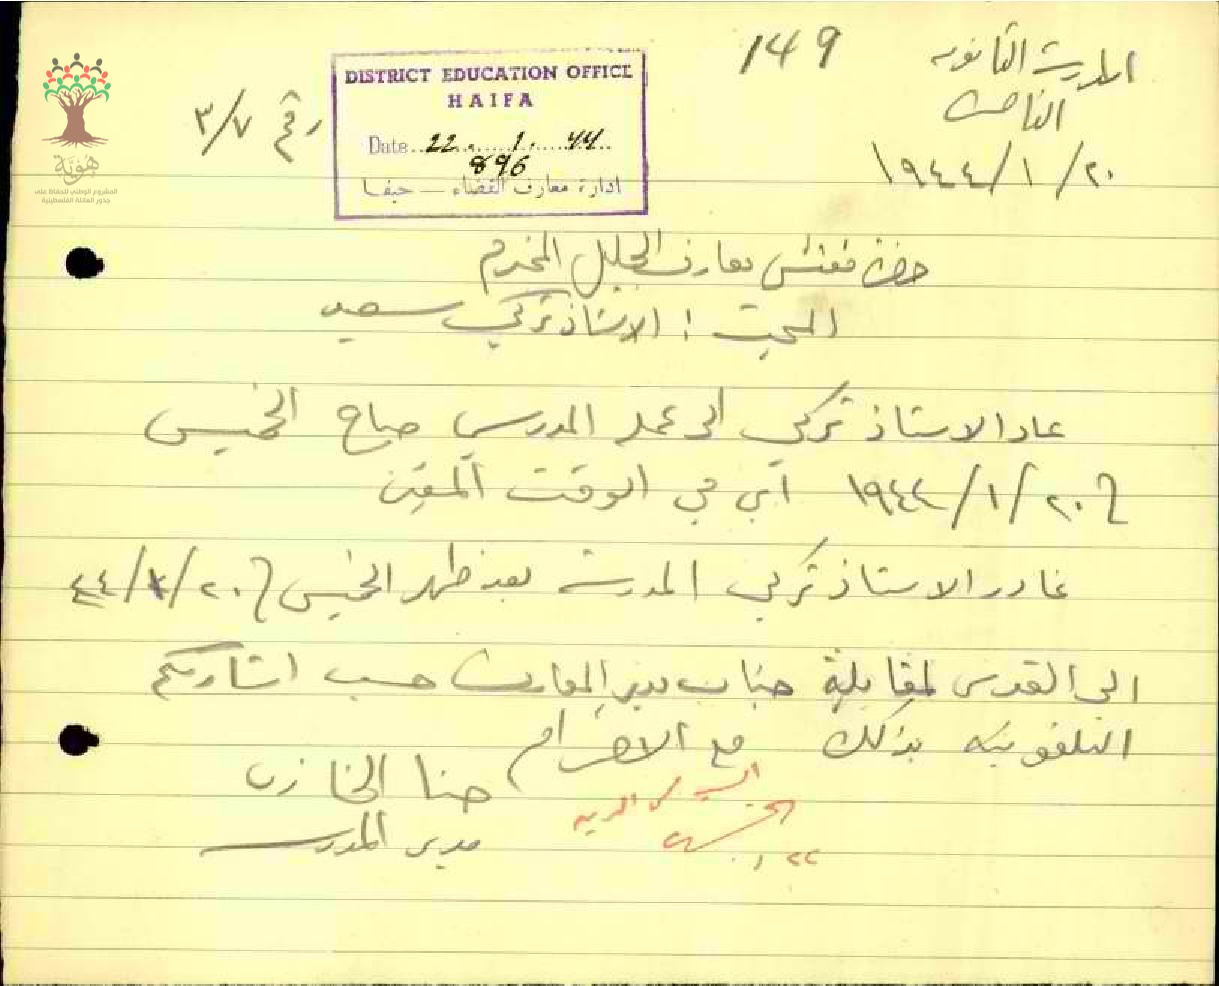 149
المدرسة الثانوية
الناصرة
١٩٤٤/١/٢٠
رقم ٣/٧
DISTRICT EDUCATION OFFICE
HAIFA
Date 22. 1. 44
896
ادارة معارف القضاء — حيفا
هوية
المشروع الوطني للحفاظ على
جذور العائلة الفلسطينية
حضرة مفتش معارف الجليل المحترم
المبحث : الاستاذ تركي سعيد
عاد الاستاذ تركي الى عمله المدرسي صباح الخميس
في ١٩٤٤/١/٢٠ اي في الوقت المعين
غادر الاستاذ تركي المدرسة بعد ظهر الخميس في ٤٤/١/٢٠
الى القدس لمقابلة جناب مدير المعارف حسب اشارتكم
التلفونية بذلك مع الاحترام
حنا الخازن
مدير المدرسة